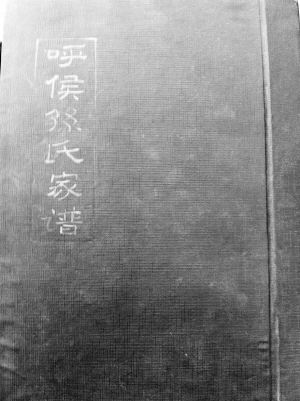 呼侯孙氏家谱